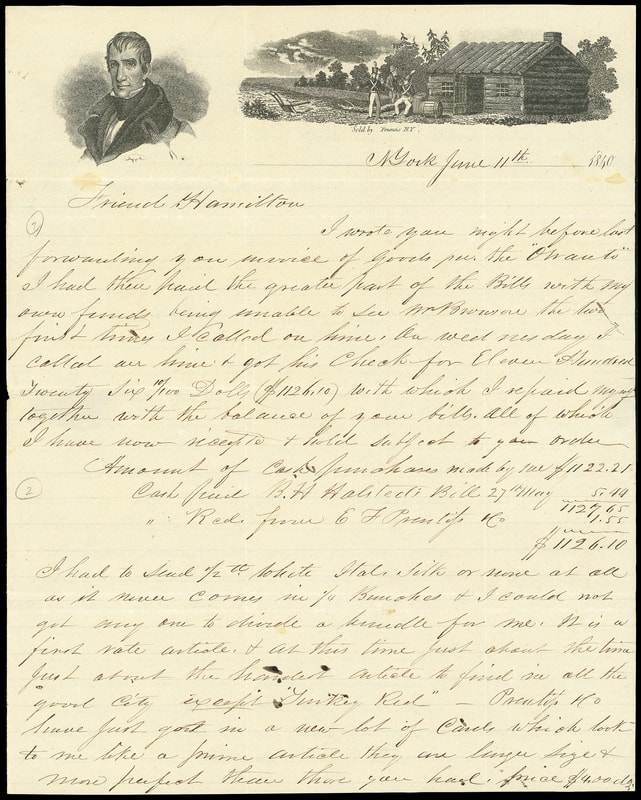 Sold by Francis N.Y.
N York June 11th 1840
Friend Hamilton
I wrote you night before last
forwarding you invoice of Goods per. the "Otranto"
I had then paid the greater part of the Bills with my
own funds being unable to see Mr Browson the two
first times I called on him. On wednesday I
called on him & got his Check for Eleven Hundred
Twenty Six 10/100 Dolls ($1126.10) with which I repaid myself
together with the balance of your bills. All of which
I have now receipts & hold subject to your order
Amount of Cash purchases made by me $1122.21
2 Cash paid B. H Halsteds Bill 27th May 5.44
1127,65
" Recd. from E F Prentiss & Co 1.55
$1126.10
I had to send 1/2 lb White Ital. Silk or none at all
as it never comes in 1/4 Bunches & I could not
get any one to divide a bundle for me. It is a
first rate article. & at this time just about the time
just about the hardest article to find in all the
"good City except "Turkey Red" — Prentiss & Co
have just got in a new lot of Cards which look
to me like a prime article they are large size &
more perfect than those you had. price $4.00 doz